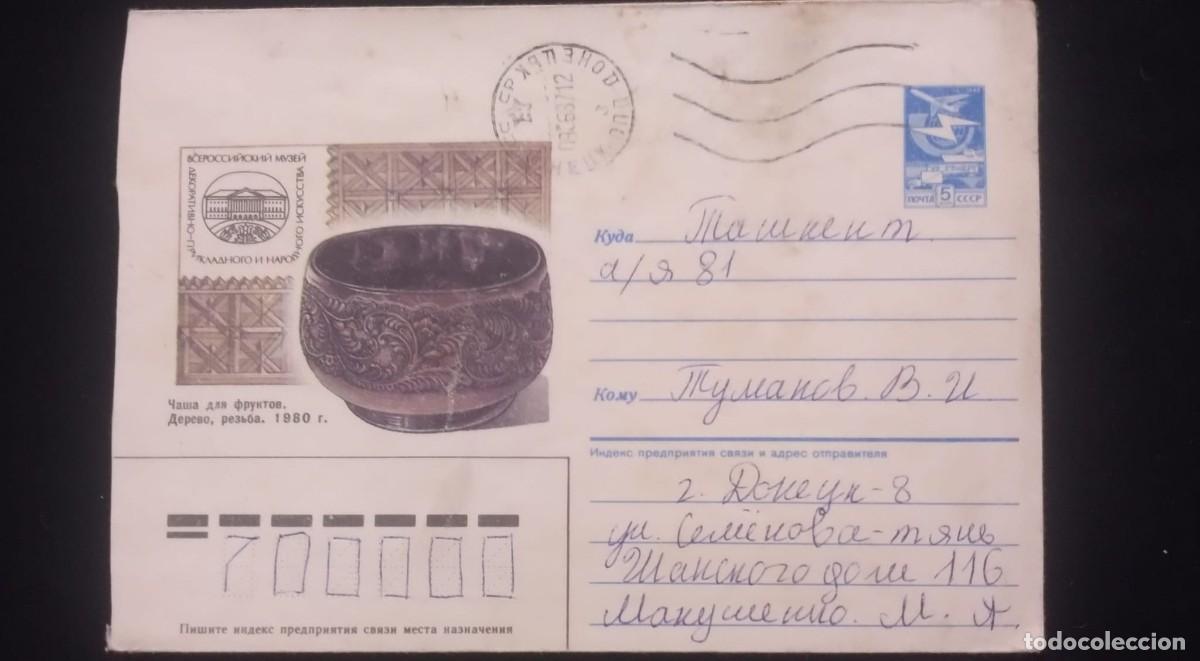 ВСЕРОССИЙСКИЙ МУЗЕЙ
ДЕКОРАТИВНО-ПРИКЛАДНОГО И НАРОДНОГО ИСКУССТВА
Чаша для фруктов.
Дерево, резьба. 1980 г.
ДОНЕЦЬК
ПОЧТА 5 СССР
Куда Ташкент
а/я 81
Кому Туманов. В. И
Индекс предприятия связи и адрес отправителя
г. Донецк-8
ул. Семёнова-тянь
Шанского дом 116
Макушенко. М. А.
700000
Пишите индекс предприятия связи места назначения
todocoleccion